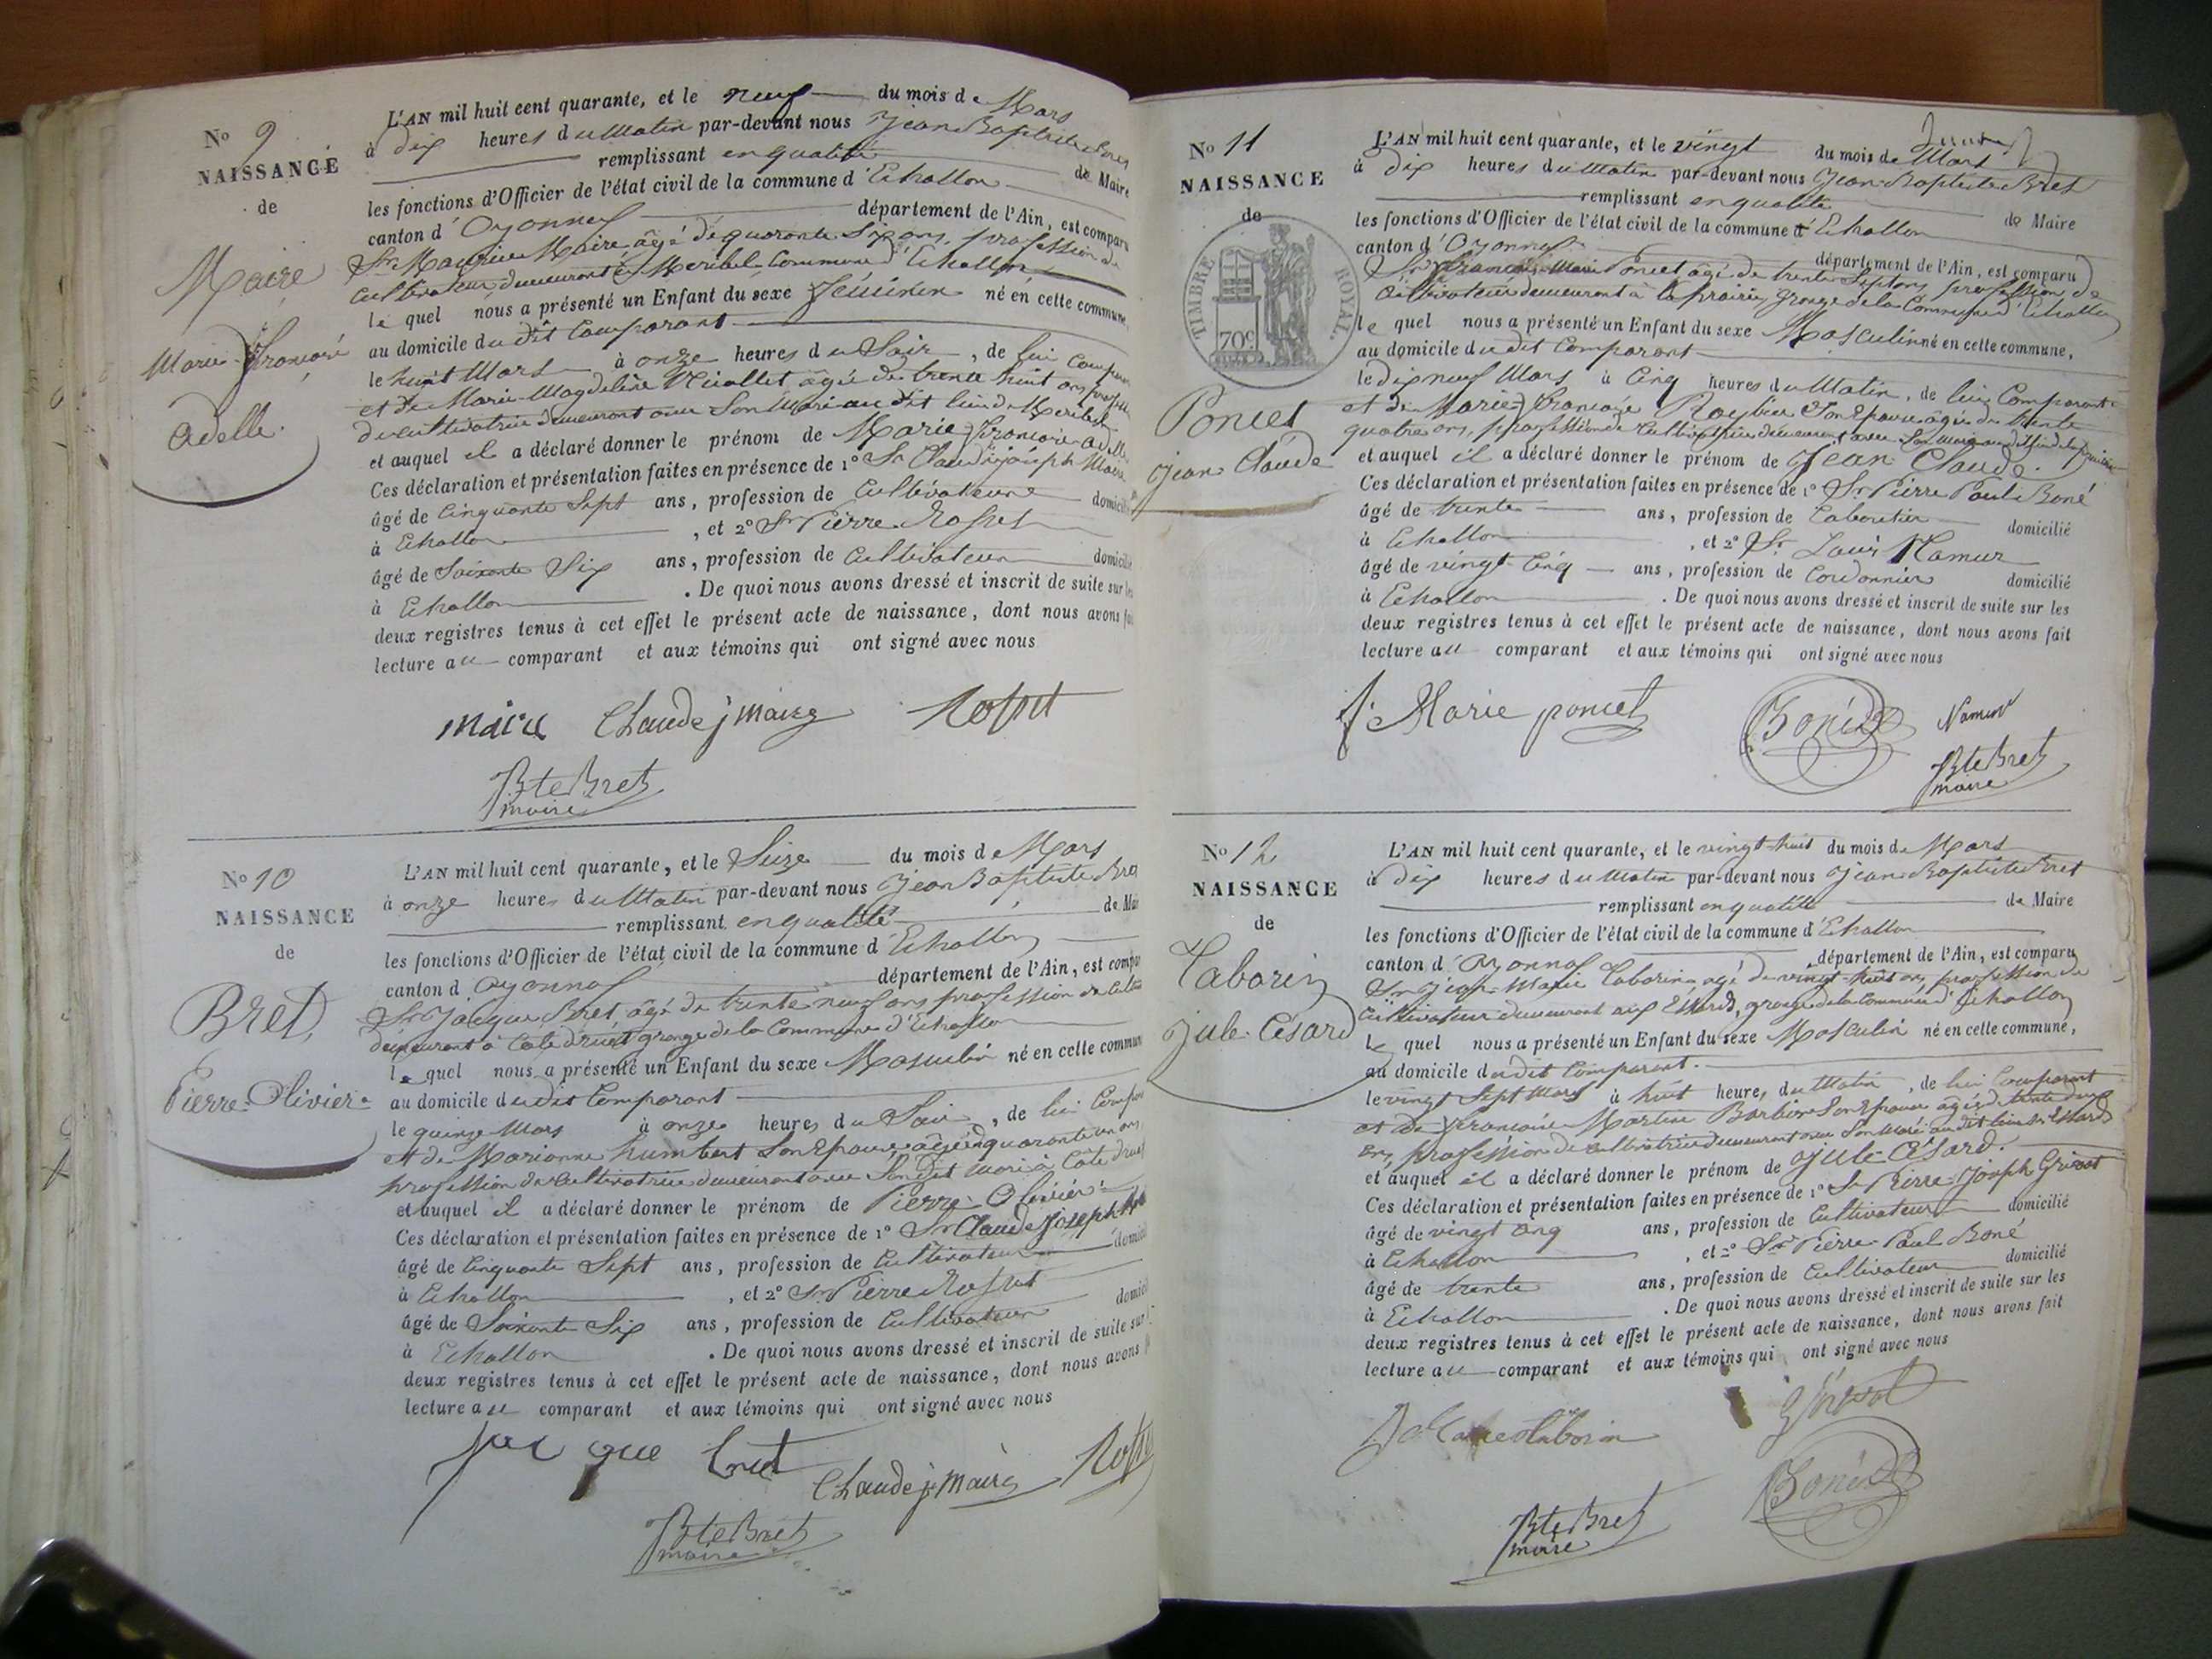 N° 9
NAISSANCE
de
Maire
Marie Françoise
Adelle.
L'AN mil huit cent quarante, et le neuf du mois de Mars
à dix heures du Matin par-devant nous Jean Baptiste Bret
remplissant en qualité de Maire
les fonctions d'Officier de l'état civil de la commune d'Echallon
canton d'Oyonnax département de l'Ain, est comparu
Sr Maurice Maire âgé de quarante six ans, profession de
Cultivateur demeurant à Meribel Commune d'Echallon
lequel nous a présenté un Enfant du sexe féminin né en cette commune,
au domicile du dit Comparant
le huit Mars à onze heures du Soir, de lui Comparant
et de Marie Magdeleine Nicollet âgée de trente huit ans
de cultivatrice demeurant avec Son Mari au dit lieu de Meribel
et auquel il a déclaré donner le prénom de Marie Françoise Adelle
Ces déclaration et présentation faites en présence de 1° Sr Claude joseph Maire
âgé de Cinquante Sept ans, profession de Cultivateur domicilié
à Echallon, et 2° Sr Pierre Rosset
âgé de Soixante Six ans, profession de Cultivateur domicilié
à Echallon. De quoi nous avons dressé et inscrit de suite sur les
deux registres tenus à cet effet le présent acte de naissance, dont nous avons fait
lecture au comparant et aux témoins qui ont signé avec nous
maire Claude j maire Rosset
Bte Bret
maire
N° 10
NAISSANCE
de
Bret,
Pierre-Olivier
L'AN mil huit cent quarante, et le Seize du mois de Mars
à onze heures du Matin par-devant nous Jean Baptiste Bret
remplissant en qualité de Maire
les fonctions d'Officier de l'état civil de la commune d'Echallon
canton d'Oyonnax département de l'Ain, est comparu
Sr Jacque Bret, âgé de trente neuf ans profession de
demeurant à grange de la Commune d'Echallon
lequel nous a présenté un Enfant du sexe Masculin né en cette commune
au domicile du dit Comparant
le quinze Mars à onze heures du Soir, de lui Comparant
et de Marianne humbert Son Epouse âgée de quarante un ans
profession de Cultivatrice demeurant avec Son dit mari à
et auquel il a déclaré donner le prénom de Pierre-Olivier
Ces déclaration et présentation faites en présence de 1° Sr Claude Joseph
âgé de Cinquante Sept ans, profession de Cultivateur domicilié
à Echallon, et 2° Sr Pierre Rosset
âgé de Soixante Six ans, profession de Cultivateur domicilié
à Echallon. De quoi nous avons dressé et inscrit de suite sur
deux registres tenus à cet effet le présent acte de naissance, dont nous avons
lecture au comparant et aux témoins qui ont signé avec nous
jac que bret Claude j maire
Bte Bret
maire
N° 11
NAISSANCE
de
TIMBRE ROYAL.
70c
Poncet
Jean Claude
L'AN mil huit cent quarante, et le vingt du mois de Mars
à dix heures du Matin par-devant nous Jean-Baptiste Bret
remplissant en qualité de Maire
les fonctions d'Officier de l'état civil de la commune d'Echallon
canton d'Oyonnax département de l'Ain, est comparu
Sr François-Marie Poncet âgé de trente Sept ans, profession de
Cultivateur demeurant à la prairie, grange de la Commune d'Echallon
lequel nous a présenté un Enfant du sexe Masculin né en cette commune,
au domicile du dit Comparant
le dix neuf Mars à Cinq heures du Matin, de lui Comparant
et de Marie Françoise Son Epouse âgée de trente
quatre ans, profession de cultivatrice demeurant avec Son mari au dit lieu de la prairie
et auquel il a déclaré donner le prénom de Jean Claude.
Ces déclaration et présentation faites en présence de 1° Sr Pierre Paul Boné
âgé de trente ans, profession de domicilié
à Echallon, et 2° Sr Louis Namur
âgé de vingt-Cinq ans, profession de Cordonnier domicilié
à Echallon. De quoi nous avons dressé et inscrit de suite sur les
deux registres tenus à cet effet le présent acte de naissance, dont nous avons fait
lecture au comparant et aux témoins qui ont signé avec nous
f. Marie poncet Boné Namur
Bte Bret
maire
N° 12
NAISSANCE
de
Taborin
Jule-Césard
L'AN mil huit cent quarante, et le vingt-huit du mois de Mars
à dix heures du Matin par-devant nous Jean-Baptiste Bret
remplissant en qualité de Maire
les fonctions d'Officier de l'état civil de la commune d'Echallon
canton d'Oyonnax département de l'Ain, est comparu
Sr Jean-Marie Taborin âgé de vingt-huit ans, profession de
Cultivateur demeurant aux Essards, grange de la Commune d'Echallon
lequel nous a présenté un Enfant du sexe Masculin né en cette commune,
au domicile du dit Comparant.
le vingt Sept Mars à huit heures du Matin, de lui Comparant
et de Françoise Martine Barbier Son Epouse âgée de trente deux
ans, profession de cultivatrice demeurant avec Son Mari au dit lieu des Essards
et auquel il a déclaré donner le prénom de Jule-Césard.
Ces déclaration et présentation faites en présence de 1° Sr Pierre-Joseph Grivot
âgé de vingt Cinq ans, profession de Cultivateur domicilié
à Echallon, et 2° Sr Pierre Paul Boné
âgé de trente ans, profession de Cultivateur domicilié
à Echallon. De quoi nous avons dressé et inscrit de suite sur les
deux registres tenus à cet effet le présent acte de naissance, dont nous avons fait
lecture au comparant et aux témoins qui ont signé avec nous
Taborin Grivot
Bte Bret Boné
maire